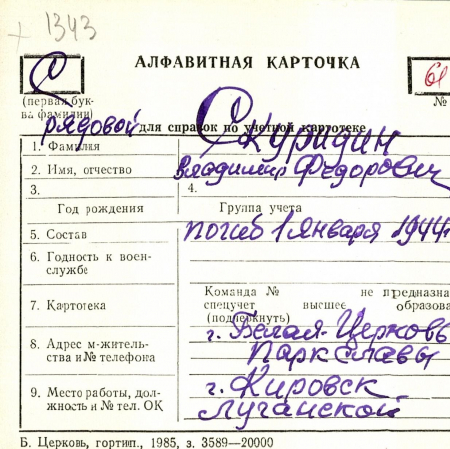 1343
АЛФАВИТНАЯ КАРТОЧКА
С
61
(первая бук-
ва фамилии)
№
рядовой
для справок по учетной картотеке
1. Фамилия Скуридин
2. Имя, отчество Владимир Федорович
3. 4.
Год рождения Группа учета
5. Состав погиб 1 января 1944
6. Годность к воен-
службе
Команда № не предназна
7. Картотека спецучет высшее образова
(подчеркнуть)
г. Белая-Церковь
8. Адрес м-житель-
ства и № телефона Парк Славы
9. Место работы, дол- г. Кировск
жность и № тел. ОК Луганской
Б. Церковь, гортип., 1985, з. 3589—20000